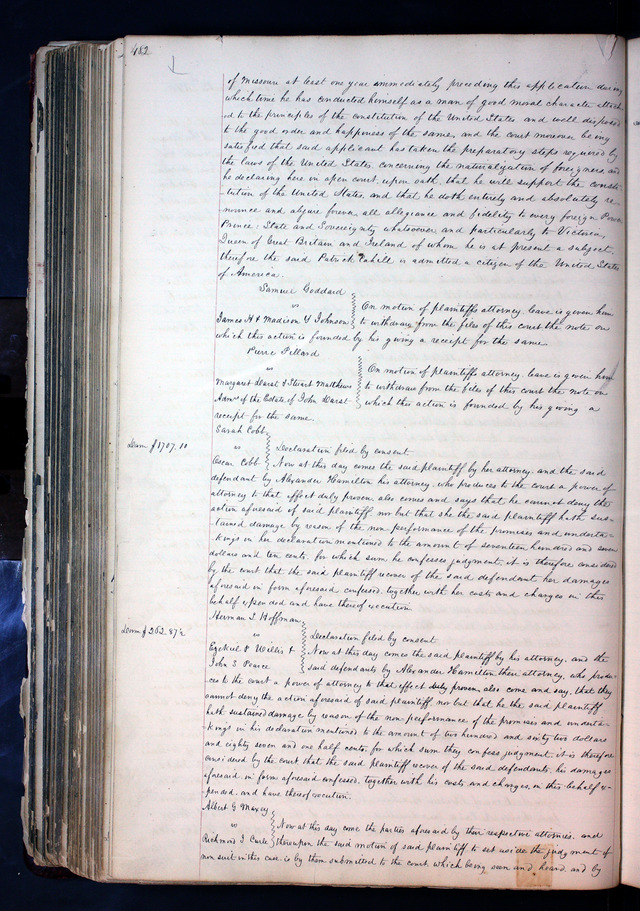 482
of Missouri at least one year immediately preceding this application during
which time he has conducted himself as a man of good moral character attach
ed to the principles of the constitution of the United States and well disposed
to the good order and happiness of the same, and the court moreover being
satisfied that said applicant has taken the preparatory steps required by
the laws of the United States, concerning the naturalization of foreigners, and
he declaring here in open court, upon oath, that he will support the consti-
-tution of the United States, and that he doth entirely and absolutely re-
nounce and abjure forever all allegiance and fidelity to every foreign Power
Prince, State and Sovereignty whatsoever and particularly to Victoria
Queen of Great Britain and Ireland of whom he is at present a subject,
therefore the said Patrick Cahill is admitted a citizen of the United States
of America.
Samuel Goddard
vs
James H & Madison Y Johnson
On motion of plaintiffs attorney leave is given him
to withdraw from the files of this court the note on
which this action is founded by his giving a receipt for the same.
Pierre Pillard
vs
Margaret Darst & Stuart Matthews
Admrs of the Estate of John Darst
On motion of plaintiffs attorney, leave is given him
to withdraw from the files of this court the note on
which this action is founded by his giving a
receipt for the same.
Sarah Cobb
vs
Oscar Cobb
Dam $1707.10
Declaration filed by consent
Now at this day comes the said plaintiff by her attorney, and the said
defendant by Alexander Hamilton his attorney, who produces to the court a power of
attorney to that effect duly proven, also comes and says that he cannot deny the
action aforesaid of said plaintiff, nor but that she the said plaintiff hath sus-
tained damage by reason of the non performance of the promises and underta-
kings in her declaration mentioned to the amount of seventeen hundred and seven
dollars and ten cents, for which sum he confesses judgment, it is therefore considered
by the court that the said plaintiff recover of the said defendant her damages
aforesaid in form aforesaid confessed, together with her costs and charges in this
behalf expended, and have thereof execution.
Herman L Hoffman
vs
Ezekiel & Willis &
John S Pearce
Dam $262.87½
Declaration filed by consent
Now at this day comes the said plaintiff by his attorney, and the
said defendants by Alexander Hamilton their attorney, who produ-
ces to the court a power of attorney to that effect duly proven, also come and say, that they
cannot deny the action aforesaid of said plaintiff, nor but that he the said plaintiff
hath sustained damage by reason of the non performance of the promises and underta-
kings in his declaration mentioned to the amount of two hundred and sixty two dollars
and eighty seven and one half cents, for which sum they confess judgment, it is therefore
considered by the court that the said plaintiff recover of the said defendants, his damages
aforesaid, in form aforesaid confessed, together with his costs and charges, in this behalf ex-
pended, and have thereof execution.
Albert G Maxey
vs
Richmond J Curle
Now at this day come the parties aforesaid by their respective attornies, and
thereupon the said motion of said plaintiff to set aside the judgment of
non suit in this case is by them submitted to the court, which being seen and heard, and by